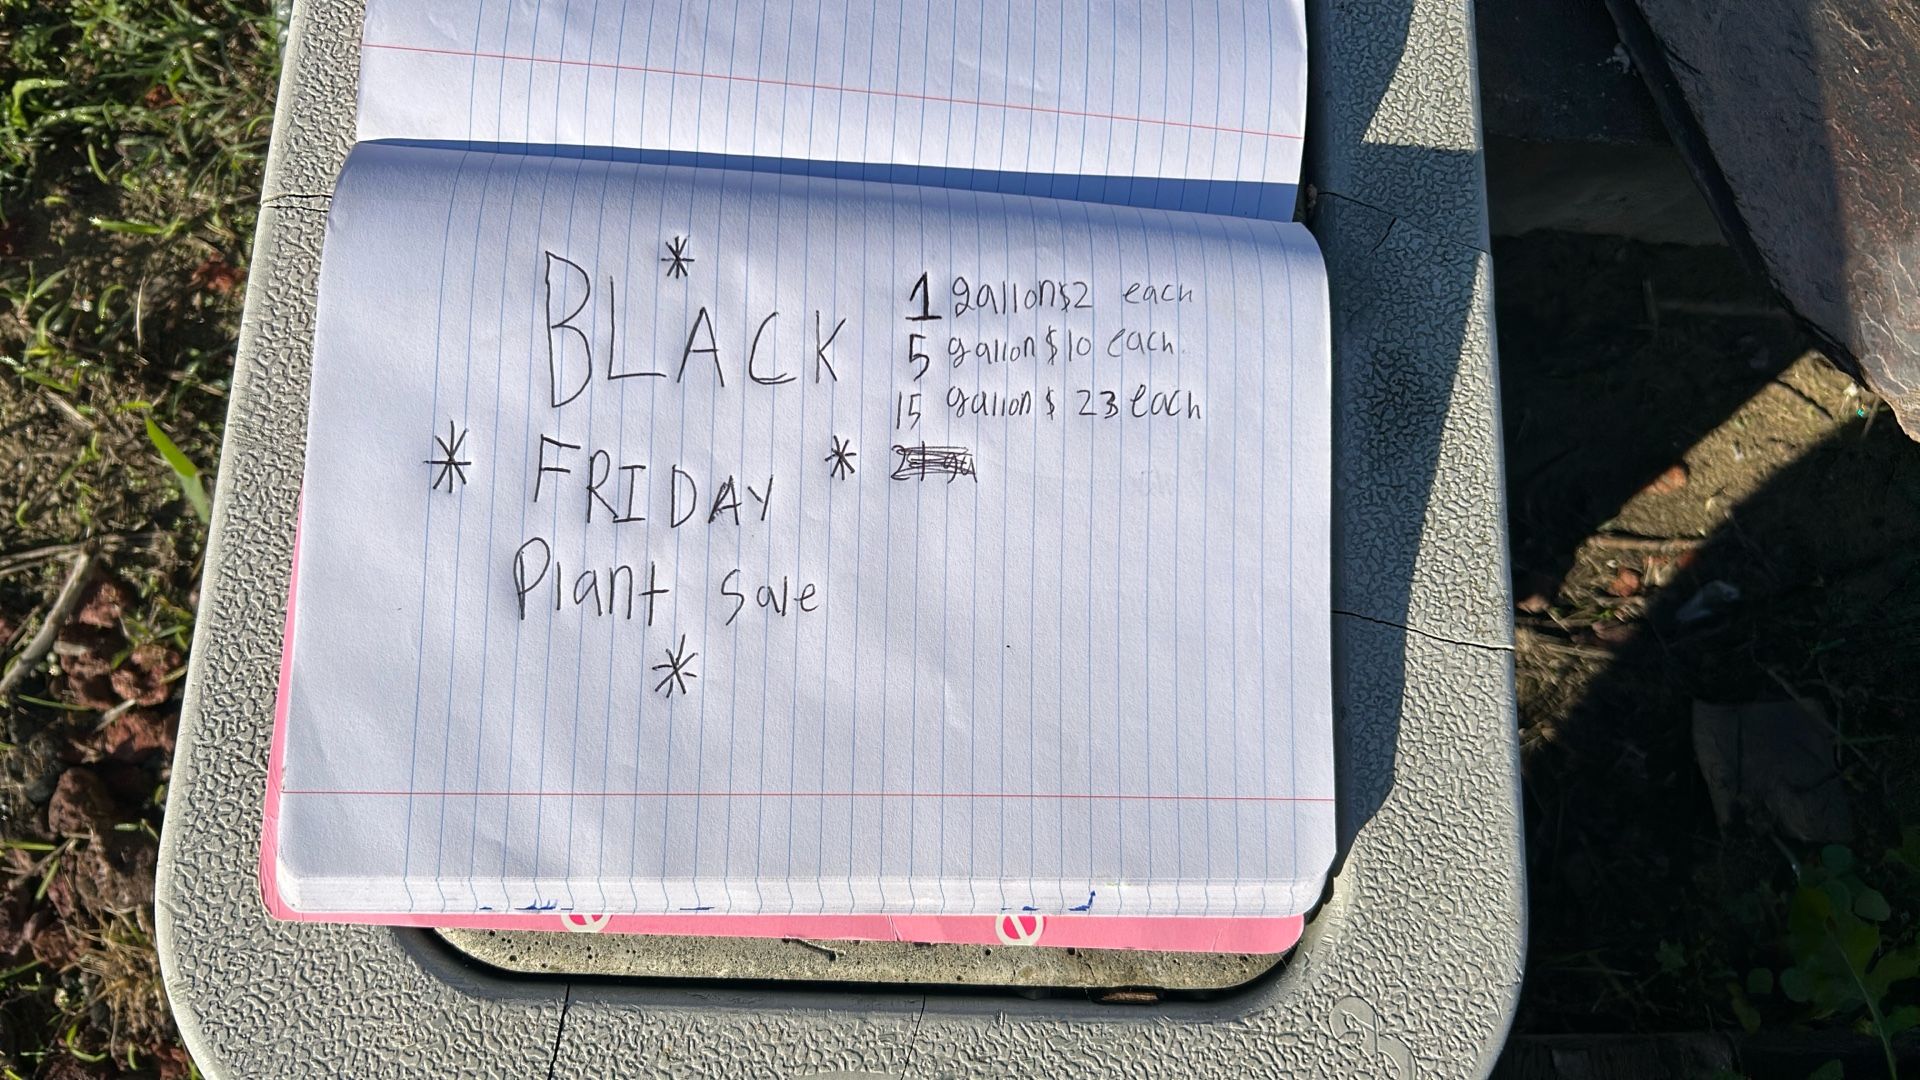 *
BLACK
* FRIDAY *
Plant sale
*
1 gallon $2 each
5 gallon $10 each.
15 gallon $ 23 each